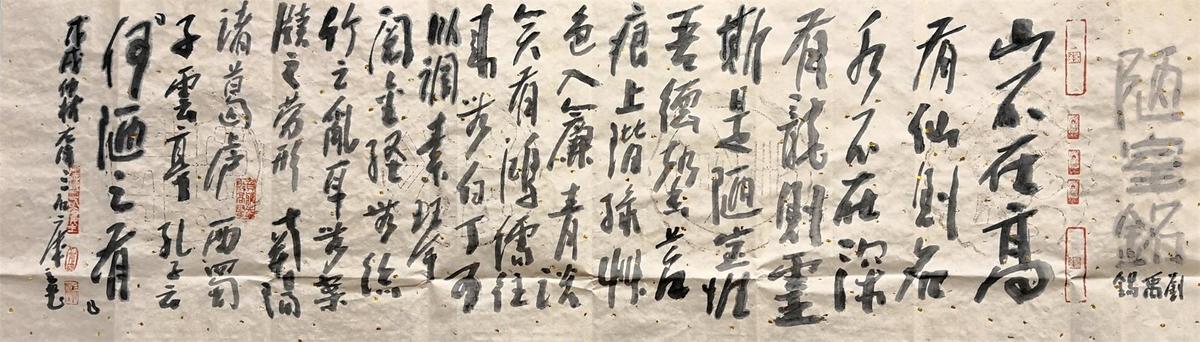 陋室銘
劉禹錫
山不在高
有仙則名
水不在深
有龍則靈
斯是陋室惟
吾德馨苔
痕上階綠艸
色入簾青談
笑有鴻儒往
來無白丁可
以調素琴
閱金經無絲
竹之亂耳無案
牘之勞形南陽
諸葛廬西蜀
子雲亭孔子云
何陋之有
戊戌仲秋